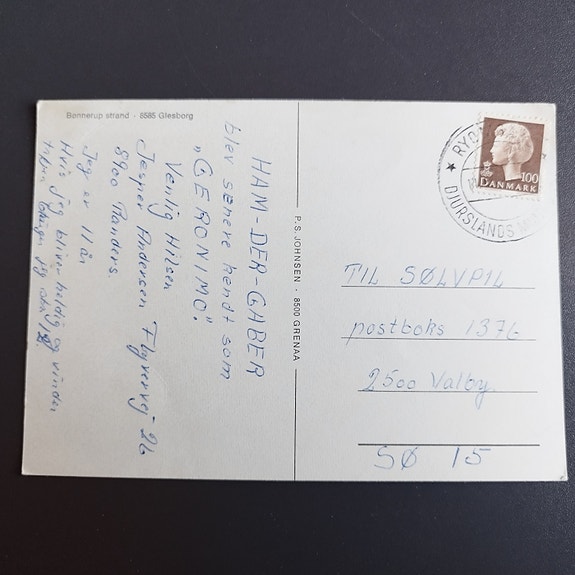 Bønnerup strand · 8585 Glesborg
HAM-DER-GABER
blev senere kendt som
"GERONIMO".
Venlig Hilsen
Jesper Andersen Flyvervej 26
8900 Randers.
Jeg er 11 år
Hvis jeg bliver heldig og vinder
jeg
P.S. JOHNSEN · 8500 GRENAA
100
DANMARK
RYO
DJURSLANDS
TIL SØLVPIL
postboks 1376
2500 Valby.
SØ 15